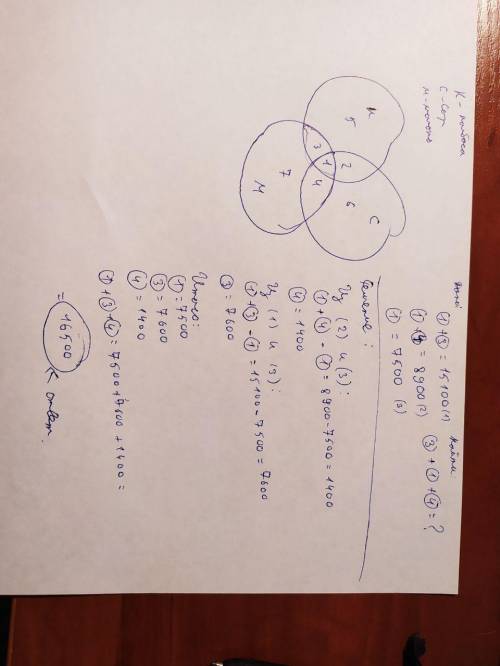 К - колбаса
С - сыр
М - молоко
К
5
2
С
6
3
1
4
7
М
Дано
①+③ = 15100 (1)
①+④ = 8900 (2)
① = 7500 (3)
Найти
③+①+④ = ?
Решение:
Из (2) и (3):
①+④-① = 8900-7500 = 1400
④ = 1400
Из (1) и (3):
①+③-① = 15100-7500 = 7600
③ = 7600
Итого:
① = 7500
③ = 7600
④ = 1400
①+③+④ = 7500+7600+1400 =
= 16500 < ответ.